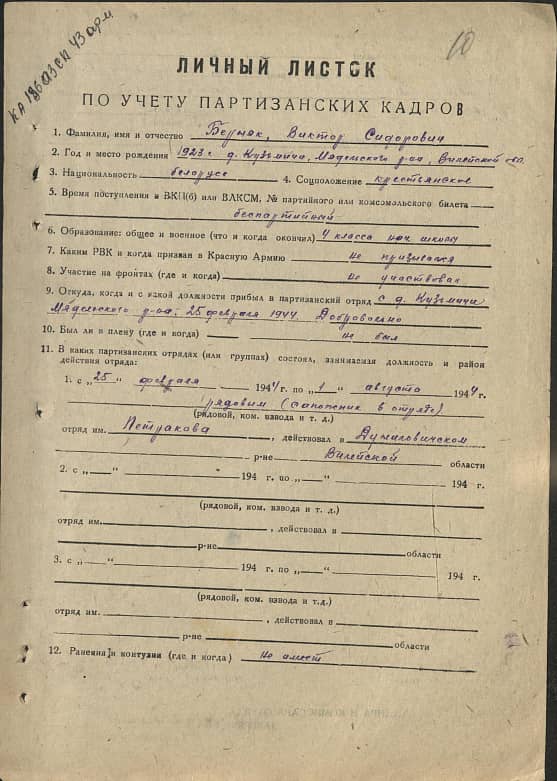 КА 186 АЗСП 43 арм
10
ЛИЧНЫЙ ЛИСТОК
ПО УЧЕТУ ПАРТИЗАНСКИХ КАДРОВ
1. Фамилия, имя и отчество Виктор Сидорович
2. Год и место рождения 1923 г. д. Кузьмичи, Мядельского р-на, Вилейской обл.
3. Национальность белорусс 4. Соцположение крестьянское
5. Время поступления в ВКП(б) или ВЛКСМ, № партийного или комсомольского билета
беспартийный
6. Образование: общее и военное (что и когда окончил) 4 класса нач школы
7. Каким РВК и когда призван в Красную Армию не призывался
8. Участие на фронтах (где и когда) не участвовал
9. Откуда, когда и с какой должности прибыл в партизанский отряд с д. Кузьмичи
Мядельского р-на, 25 февраля 1944. Добровольно
10. Был ли в плену (где и когда) не был
11. В каких партизанских отрядах (или группах) состоял, занимаемая должность и район
действия отряда:
1. с „25“ февраля 1944 г. по „1“ августа 1944 г.
рядовым (сапожник в отряде)
(рядовой, ком. взвода и т. д.)
отряд им. , действовал в Дуниловичском
р-не Вилейской области
2. с „ “ 194 г. по „ “ 194 г.
(рядовой, ком. взвода и т. д.)
отряд им. , действовал в
р-не области
3. с „ “ 194 г. по „ “ 194 г.
(рядовой, ком. взвода и т.д.)
отряд им. , действовал в
р-не области
12. Ранения и контузии (где и когда) не имеет